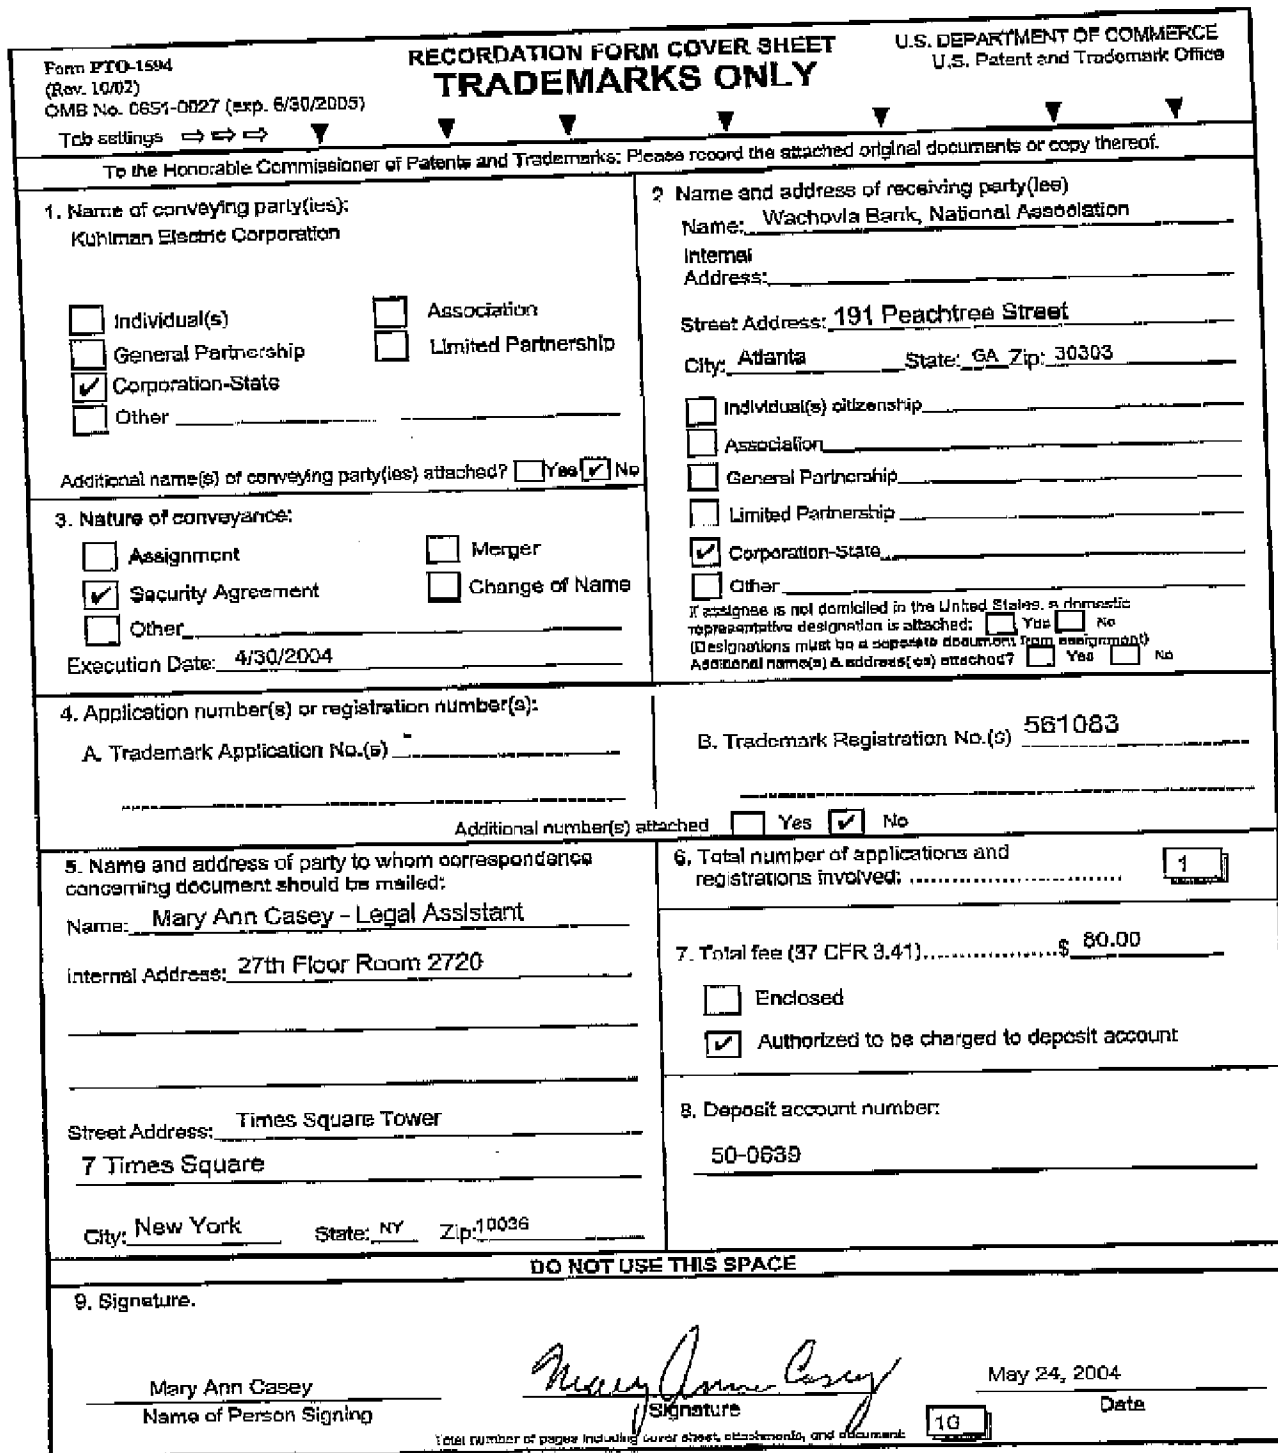 Form PTO-1594
(Rev. 10/02)
OMB No. 0651-0027 (exp. 6/30/2005)
Tab settings ⇨ ⇨ ⇨ ▼ ▼ ▼ ▼ ▼ ▼ ▼
RECORDATION FORM COVER SHEET
TRADEMARKS ONLY
U.S. DEPARTMENT OF COMMERCE
U.S. Patent and Trademark Office
To the Honorable Commissioner of Patents and Trademarks: Please record the attached original documents or copy thereof.
1. Name of conveying party(ies):
Kuhlman Electric Corporation
Individual(s)
Association
General Partnership
Limited Partnership
✔ Corporation-State
Other
Additional name(s) of conveying party(ies) attached? Yes ✔ No
2. Name and address of receiving party(ies)
Name: Wachovia Bank, National Association
Internal
Address:
Street Address: 191 Peachtree Street
City: Atlanta State: GA Zip: 30303
Individual(s) citizenship
Association
General Partnership
Limited Partnership
✔ Corporation-State
Other
If assignee is not domiciled in the United States, a domestic
representative designation is attached: Yes No
(Designations must be a separate document from assignment)
Additional name(s) & address(es) attached? Yes No
3. Nature of conveyance:
Assignment
Merger
✔ Security Agreement
Change of Name
Other
Execution Date: 4/30/2004
4. Application number(s) or registration number(s):
A. Trademark Application No.(s)
B. Trademark Registration No.(s) 561083
Additional number(s) attached Yes ✔ No
5. Name and address of party to whom correspondence
concerning document should be mailed:
Name: Mary Ann Casey - Legal Assistant
Internal Address: 27th Floor Room 2720
Street Address: Times Square Tower
7 Times Square
City: New York State: NY Zip: 10036
6. Total number of applications and
registrations involved: 1
7. Total fee (37 CFR 3.41) $ 80.00
Enclosed
✔ Authorized to be charged to deposit account
8. Deposit account number:
50-0639
DO NOT USE THIS SPACE
9. Signature.
Mary Ann Casey
Mary Ann Casey
May 24, 2004
Name of Person Signing
Signature
Date
Total number of pages including cover sheet, attachments, and document: 10